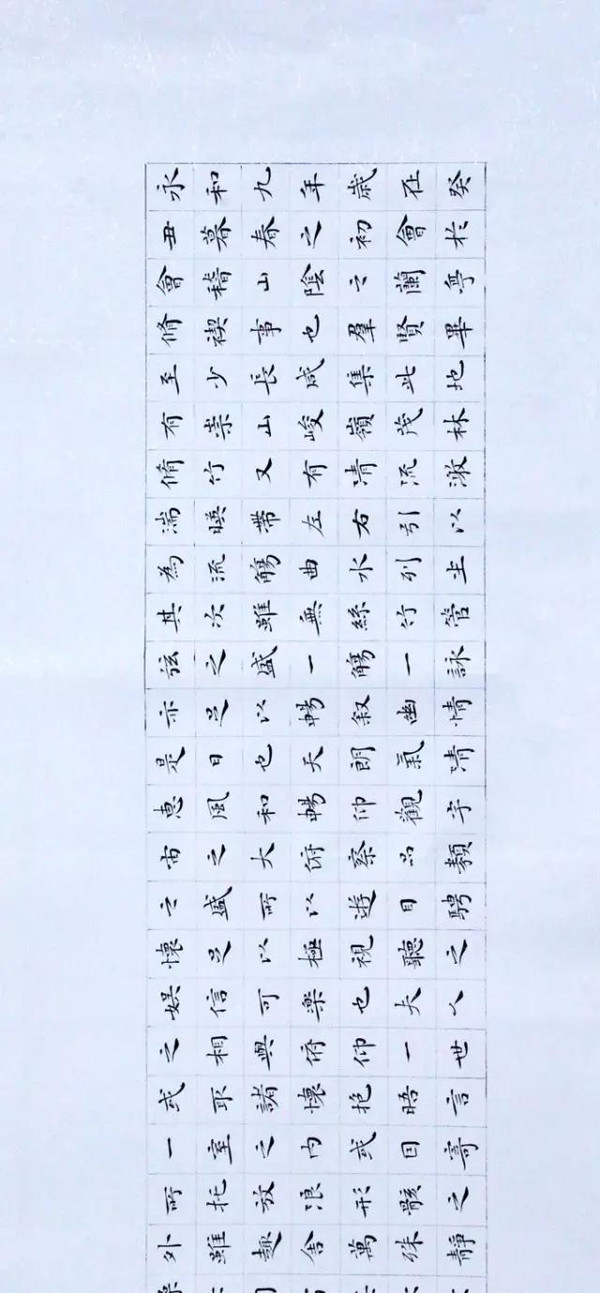 永和九年歲在癸
丑暮春之初會於
會稽山陰之蘭亭
脩禊事也羣賢畢
至少長咸集此地
有崇山峻嶺茂林
脩竹又有清流激
湍暎帶左右引以
為流觴曲水列坐
其次雖無絲竹管
弦之盛一觴一詠
亦足以暢叙幽情
是日也天朗氣清
惠風和暢仰觀宇
宙之大俯察品類
之盛所以遊目騁
懷足以極視聽之
娱信可樂也夫人
之相與俯仰一世
或取諸懷抱晤言
一室之内或囙寄
所托放浪形骸之
外雖趣舍萬殊靜